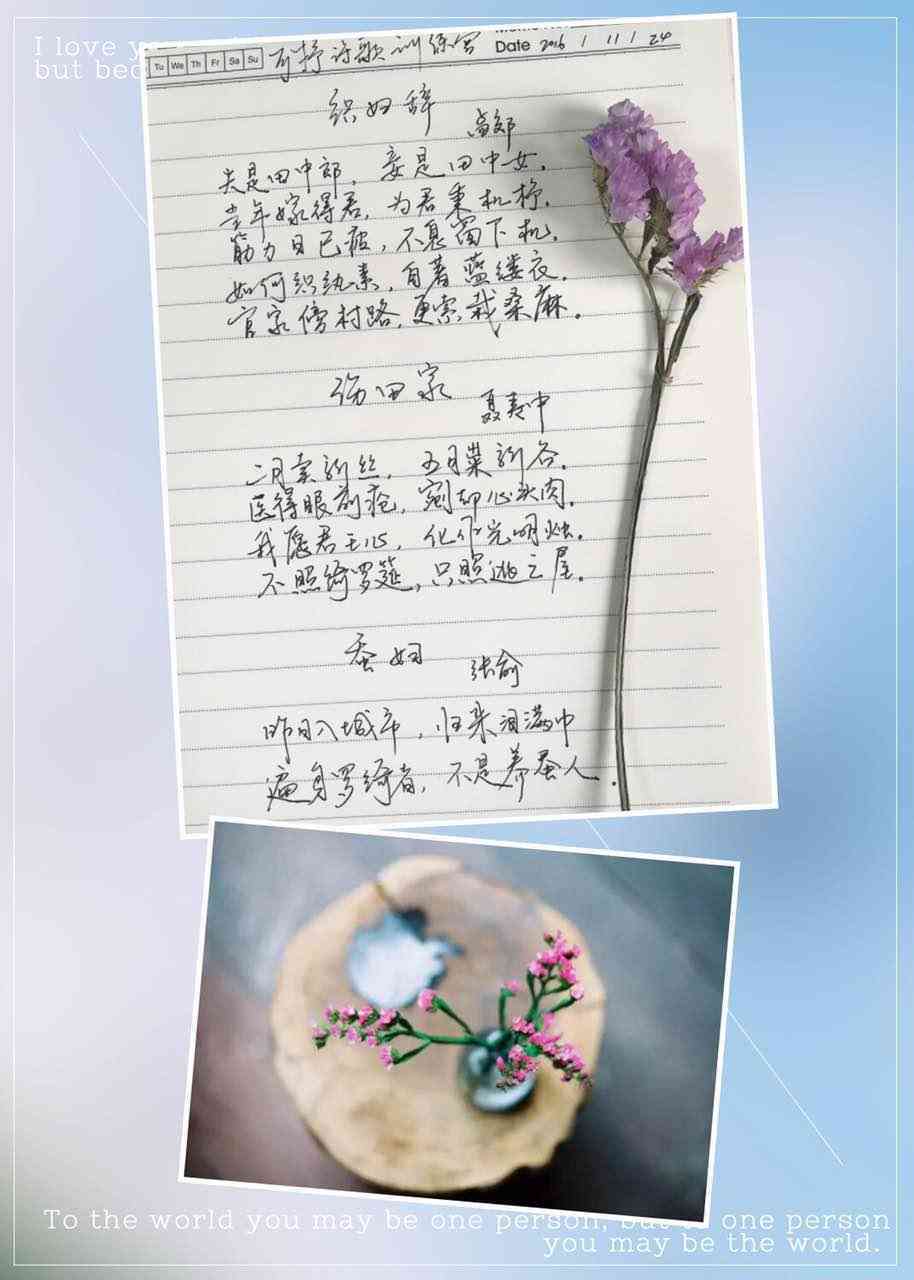 I love yo
but bec
Tu We Th Fr Sa Su 手抄诗歌训练营
Date 2016 / 11 / 24
织妇辞
孟郊
夫是田中郎，妾是田中女。
当年嫁得君，为君秉机杼。
筋力日已疲，不息窗下机。
如何织纨素，自著蓝缕衣。
官家傍村路，更索栽桑麻。
伤田家
聂夷中
二月卖新丝，五月粜新谷。
医得眼前疮，剜却心头肉。
我愿君王心，化作光明烛。
不照绮罗筵，只照逃亡屋。
蚕妇
张俞
昨日入城市，归来泪满巾
遍身罗绮者，不是养蚕人。
To the world you may be one person, but to one person
you may be the world.